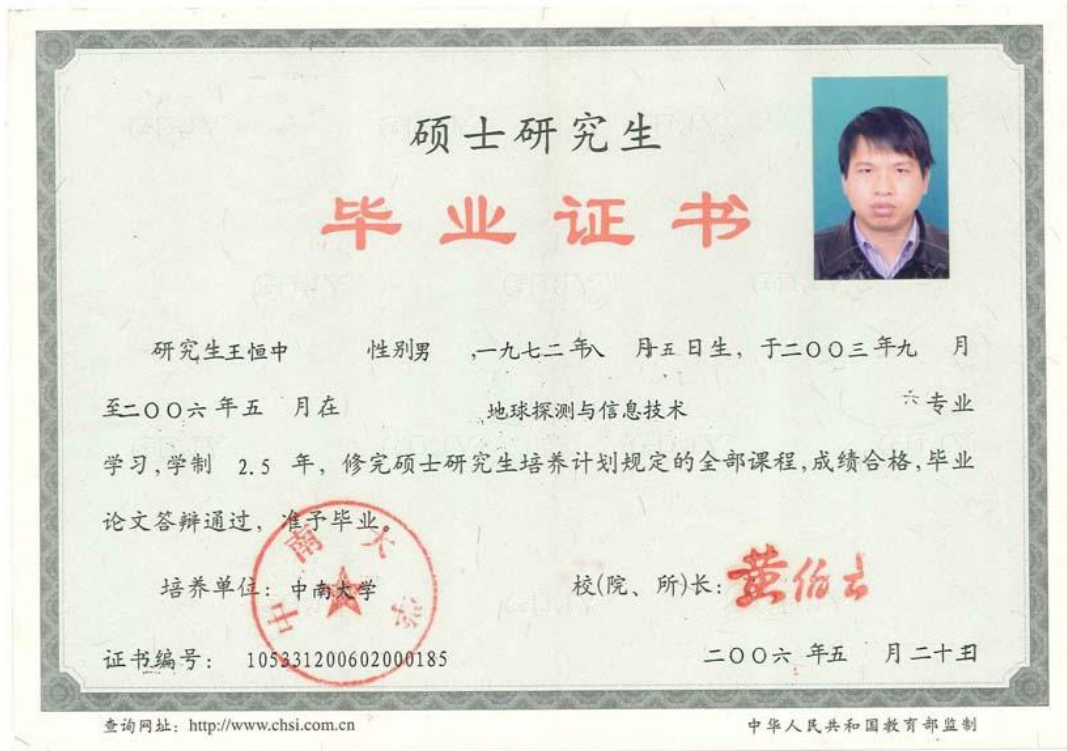 硕士研究生
毕业证书
研究生王恒中 性别男 ,一九七二年八 月十五日生, 于二〇〇三年九 月
至二〇〇六年五 月在 地球探测与信息技术 专业
学习,学制 2.5 年, 修完硕士研究生培养计划规定的全部课程,成绩合格,毕业
论文答辩通过, 准予毕业。
中南大学
培养单位: 中南大学 校(院、所)长: 黄伯云
证书编号: 105331200602000185 二〇〇六 年五 月二十日
查询网址: http://www.chsi.com.cn 中华人民共和国教育部监制